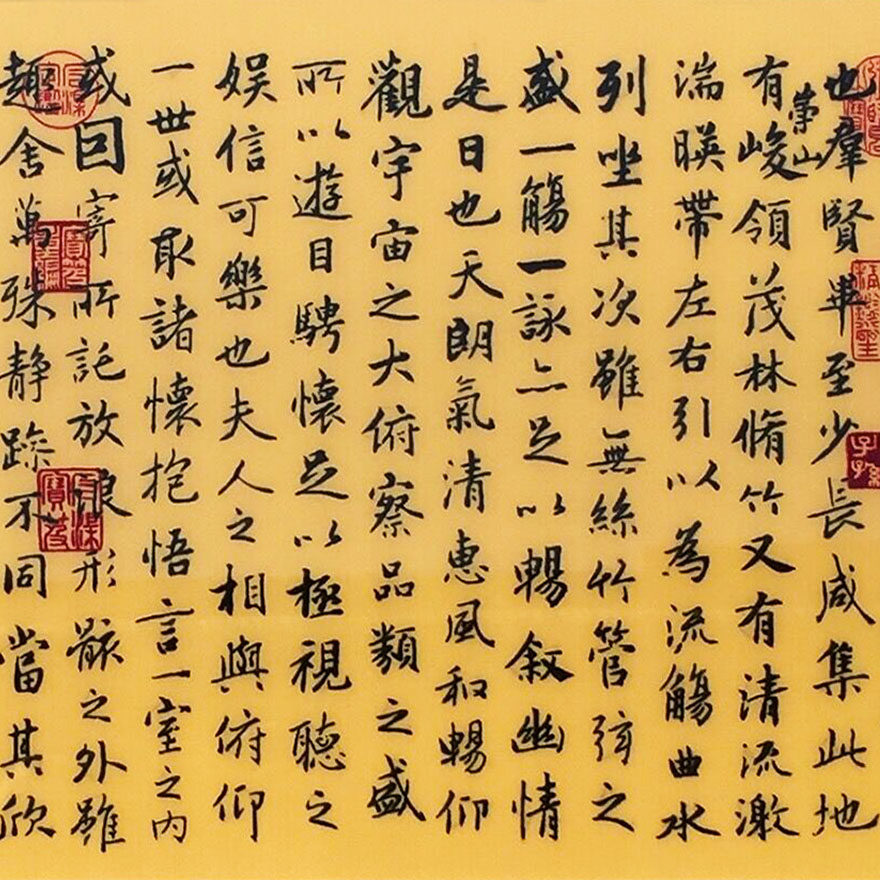 也羣賢畢至少長咸集此地
有崇山峻領茂林脩竹又有清流激
湍暎帶左右引以為流觴曲水
列坐其次雖無絲竹管弦之
盛一觴一詠亦足以暢敘幽情
是日也天朗氣清惠風和暢仰
觀宇宙之大俯察品類之盛
所以遊目騁懷足以極視聽之
娛信可樂也夫人之相與俯仰
一世或取諸懷抱悟言一室之內
或因寄所託放浪形骸之外雖
趣舍萬殊静躁不同當其欣
子孫